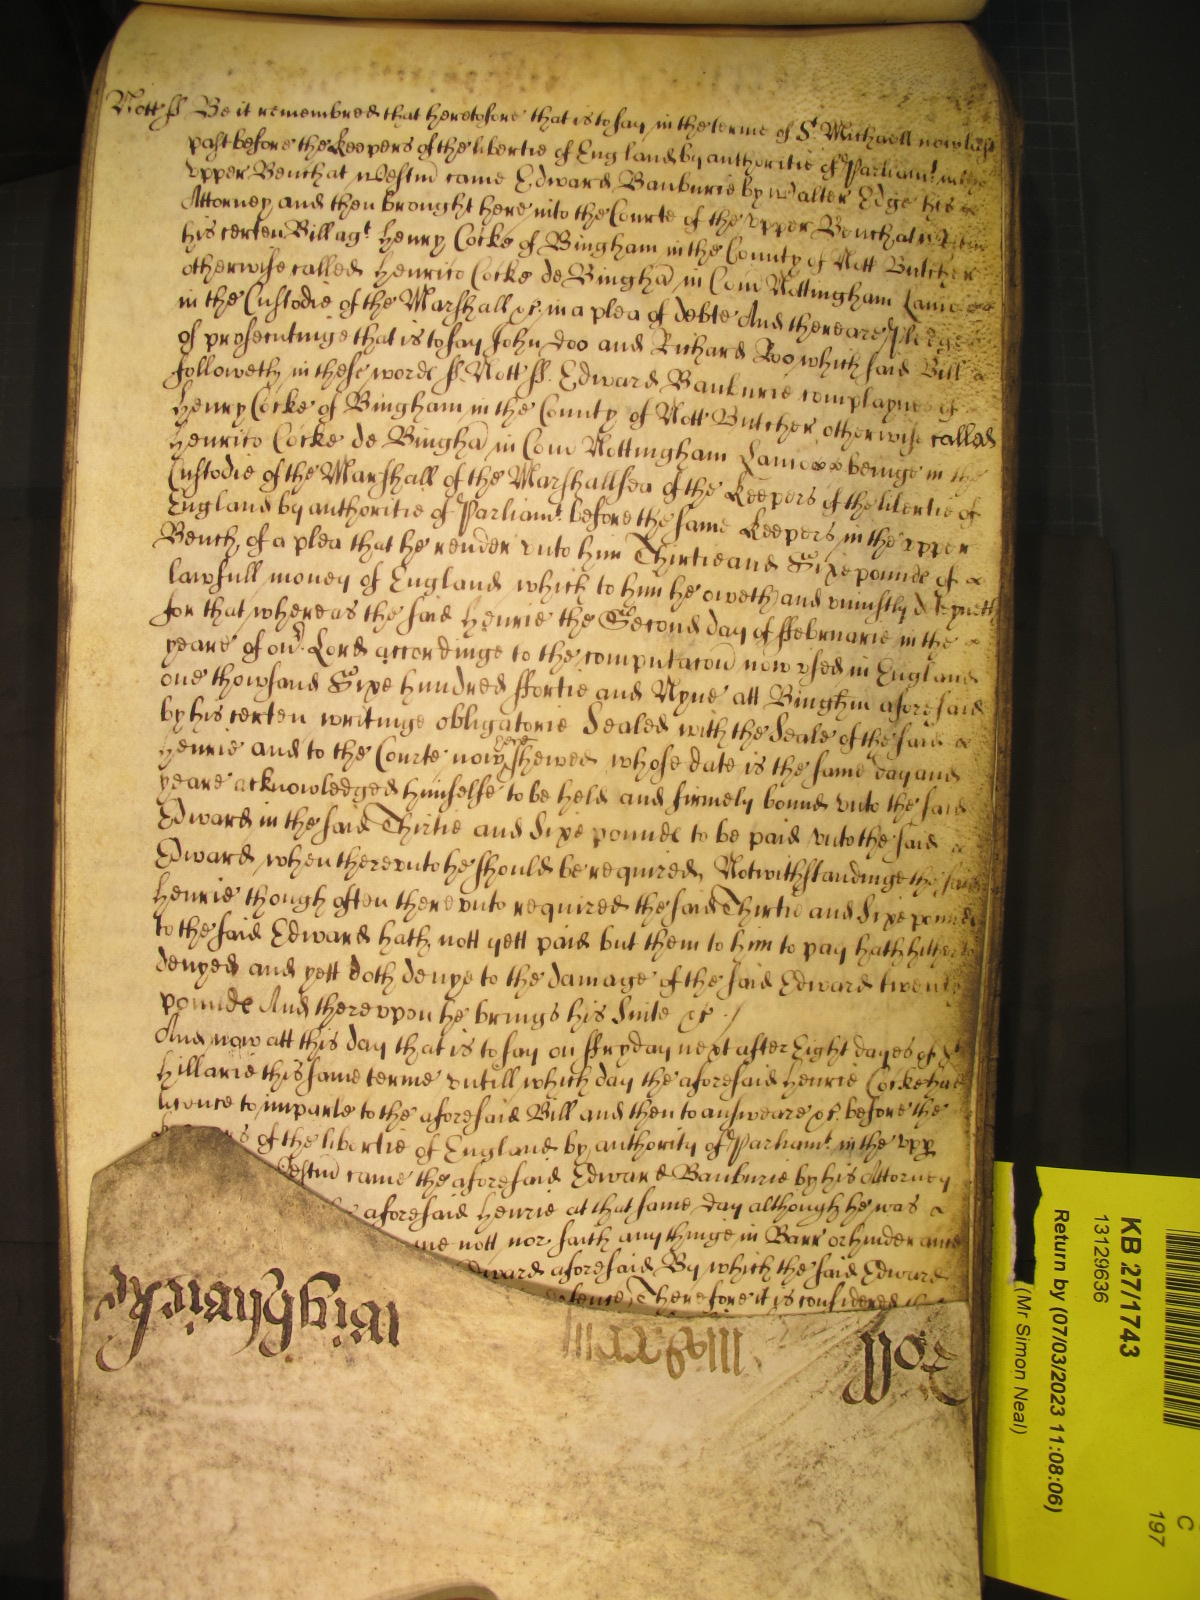 Nott ss Be it remembred that heretofore that is to say in the terme of St. Michaell now last
past before the Keepers of the libertie of England by authoritie of Parliamt. in the
vpper Bench at Westm came Edward Banburie by Walter Edge his
Attorney and then brought here into the Courte of the vpper Bench at Westm
his certen Bill agt. Henry Cocke of Bingham in the County of Nott Butcher
otherwise called Henrico Cocke de Bingham in Com Nottingham Lanio
in the Custodie of the Marshall &c. in a plea of debte And there are pledges
of prosecutinge that is to say John Doo and Richard Roo which said Bill
followeth in these words ss. Nott ss. Edward Banburie complaynes of
Henry Cocke of Bingham in the County of Nott Butcher otherwise called
Henrico Cocke de Bingham in Com Nottingham Lanio beinge in the
Custodie of the Marshall of the Marshallsea of the Keepers of the libertie of
England by authoritie of Parliamt. before the same Keepers in the vpper
Bench, of a plea that he render vnto him Thirtie and Sixe pounds of
lawfull money of England which to him he oweth and vniustly deteyneth
for that whereas the said Henrie the Second day of ffebruarie in the
yeare of our Lord accordinge to the computacon now vsed in England
one thowsand Sixe hundred ffortie and Nyne att Bingham aforesaid
by his certen writinge obligatorie Sealed with the Seale of the said
Henrie and to the Courte now here shewed whose date is the same day and
yeare acknowledged himselfe to be held and firmely bound vnto the said
Edward in the said Thirtie and Sixe pounds to be paid vnto the said
Edward when therevnto he should be required, Notwithstandinge the said
Henrie though often therevnto required the said Thirtie and Sixe pounds
to the said Edward hath nott yett paid but them to him to pay hath hitherto
denyed and yett doth denye to the damage of the said Edward twenty
pounds And therevpon he brings his Suite &c. /
And now att this day that is to say on ffryday next after Eight dayes of St.
Hillarie this same terme vntill which day the aforesaid Henrie Cocke had
licence to imparle to the aforesaid Bill and then to answeare &c. before the
of the libertie of England by authority of Parliamt. in the vpp
came the aforesaid Edward Banburie by his Attorney
aforesaid Henrie at that same day although he was
nott nor saith any thinge in Barr or hinderance
Edward aforesaid By which the said Edward
Therefore it is considered
Wightwicke
Roll
KB 27/1743
13129636
Return by (07/03/2023 11:08:06)
(Mr Simon Neal)
C
197